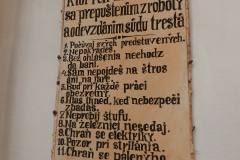 sa prepuštením zroboty
a odevzdáním súdu trestá
1. Počúvaj svých predstavených.
2. Nepokradeš.
3. Bez ohlášenia nechodz
do bani.
4. Sám nepojdeš na štros
ani na jamu.
5. Buď pri každé práci
obezretný.
6. Hlás ihneď, keď nebezpečí
zbadáš.
7. Neprebij štufu.
8. Na železnici nesedaj.
9. Chráň se elektriky.
10. Pozor pri strílaňú.
11. Chráň se páleného